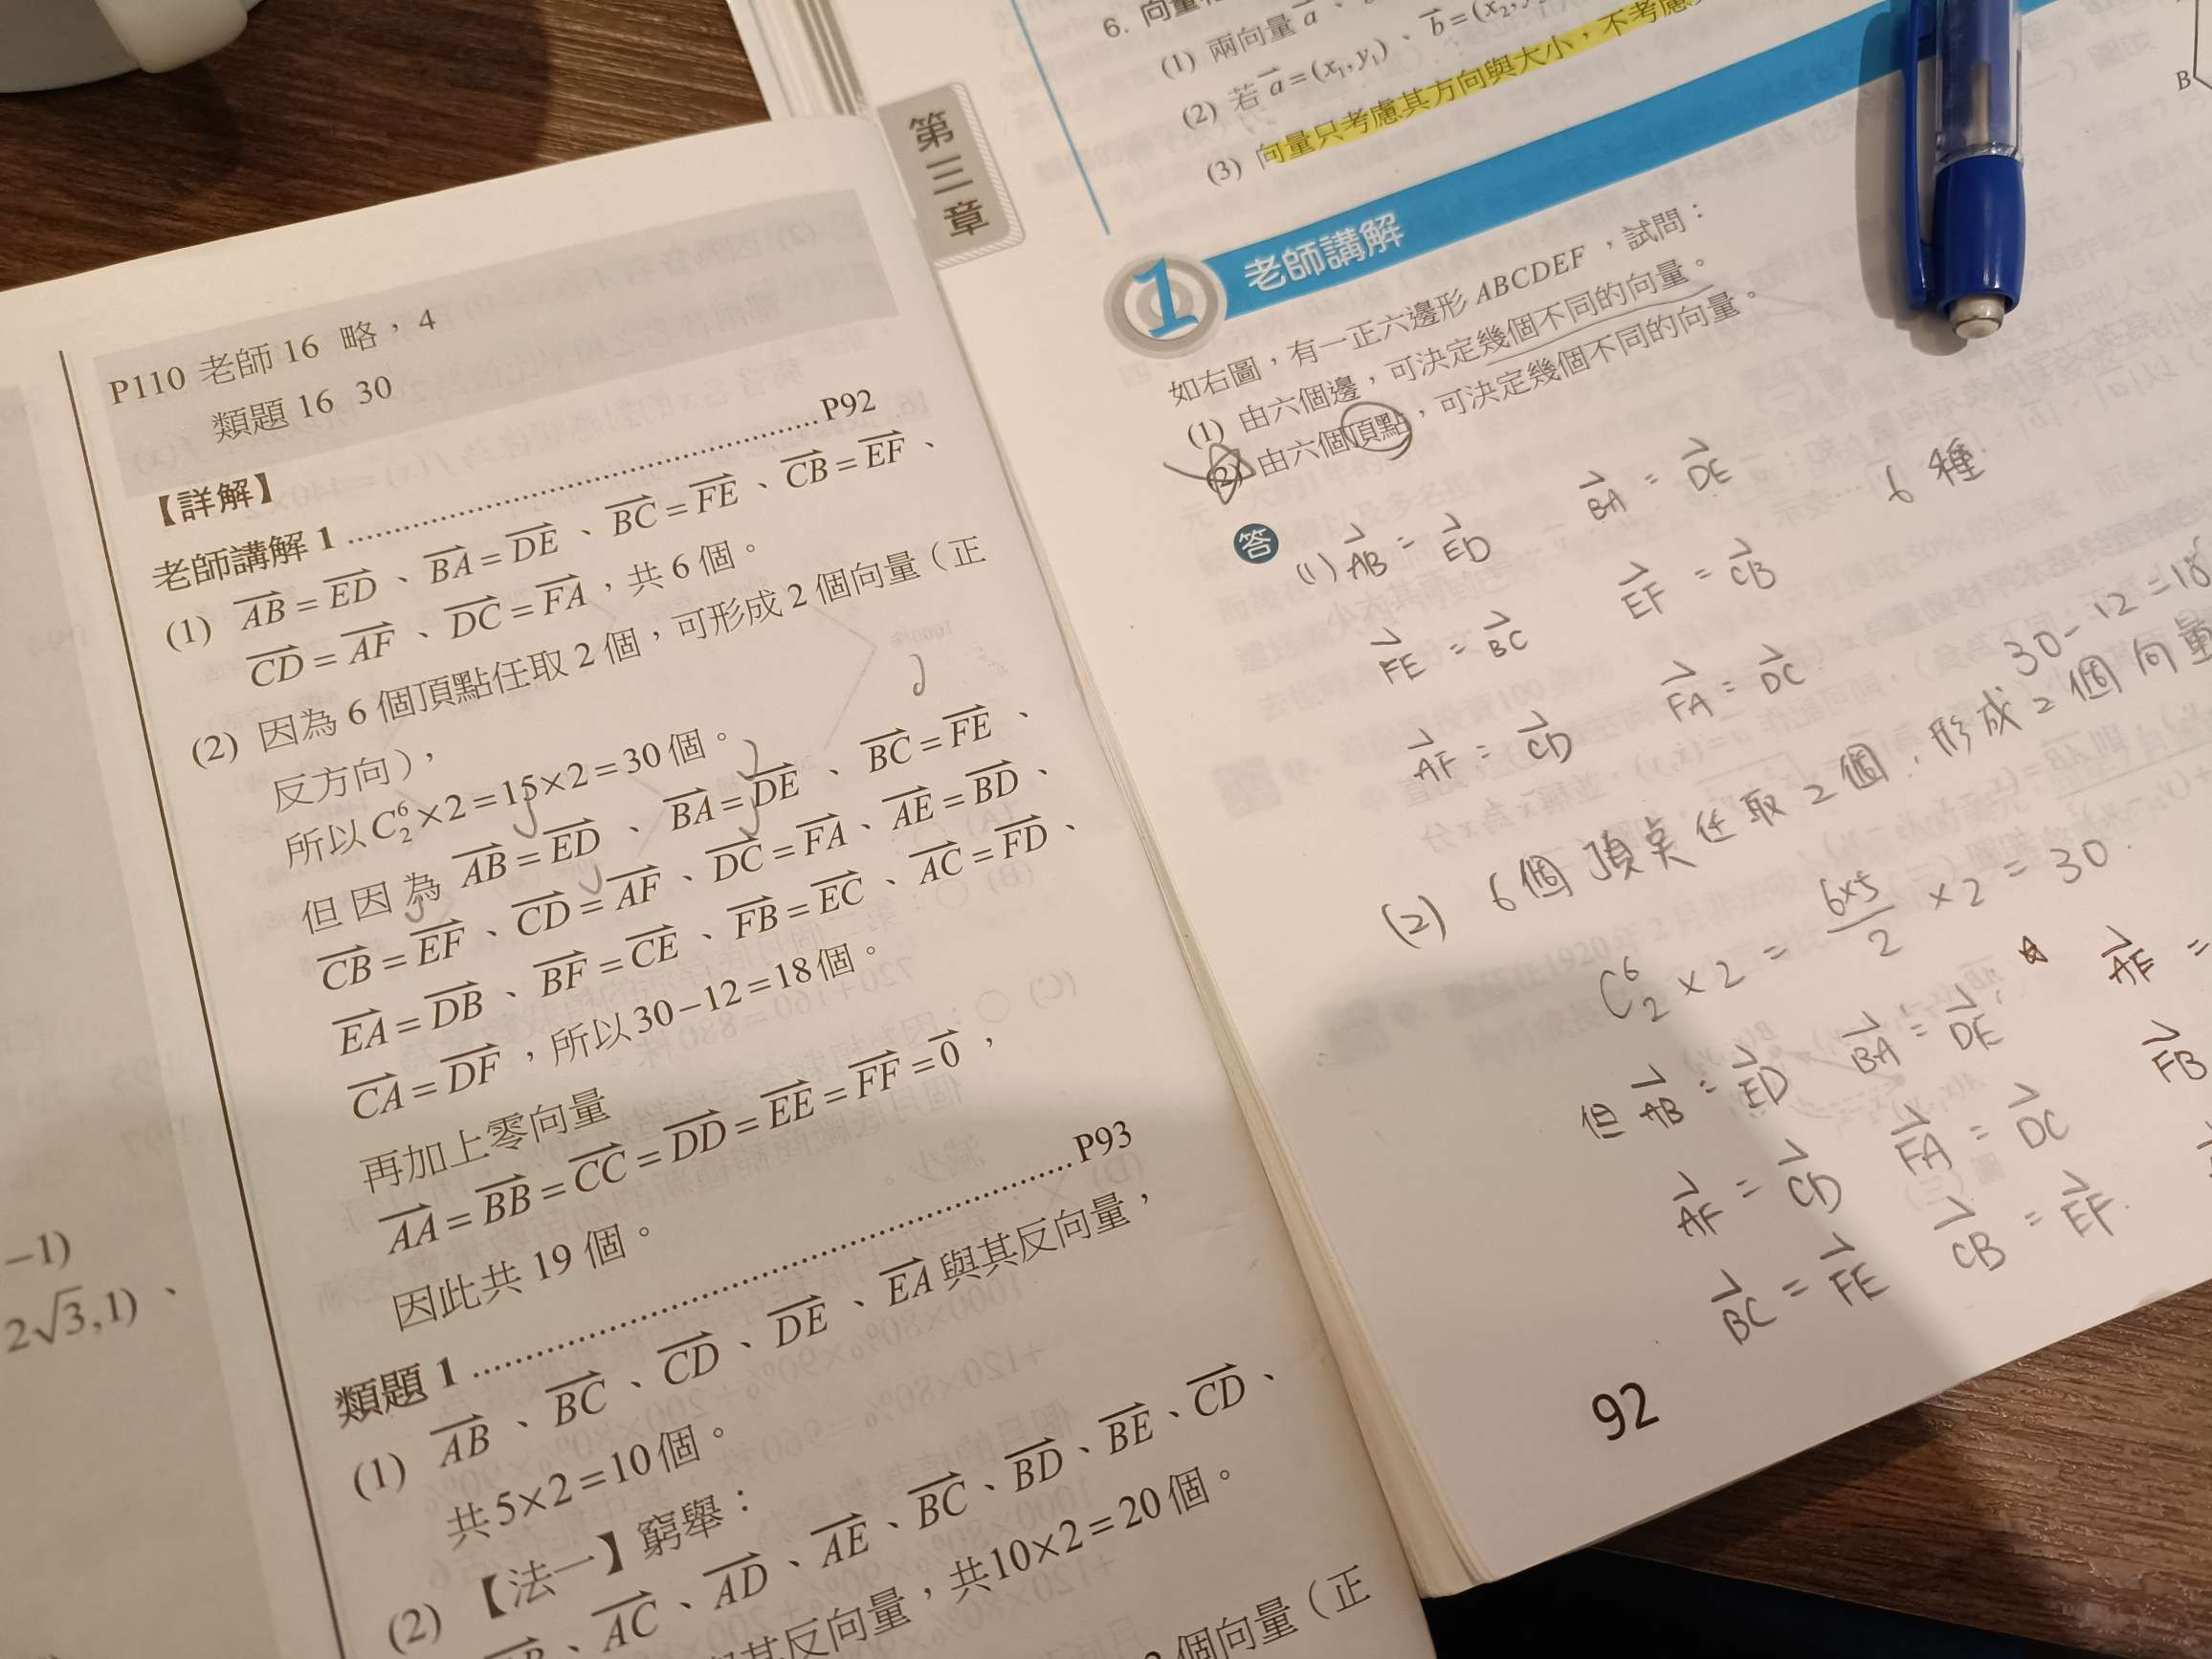 P110 老師 16 略，4
類題 16 30
【詳解】
老師講解 1 ........................ P92
(1) AB = ED、BA = DE、BC = FE、CB = EF、
CD = AF、DC = FA，共 6 個。
(2) 因為 6 個頂點任取 2 個，可形成 2 個向量（正
反方向），
所以 C⁶₂×2＝15×2＝30 個。
但因為 AB = ED、BA = DE、BC = FE、
CB = EF、CD = AF、DC = FA、AE = BD、
EA = DB、BF = CE、FB = EC、AC = FD、
CA = DF，所以 30－12＝18 個。
再加上零向量
AA = BB = CC = DD = EE = FF = 0，
因此共 19 個。
類題 1 ........................ P93
(1) AB、BC、CD、DE、EA 與其反向量，
共 5×2＝10 個。
(2) 【法一】窮舉：
、AC、AD、AE、BC、BD、BE、CD、
其反向量，共 10×2＝20 個。
個向量（正
-1)
2√3,1)、
第三章
6. 向量
(1) 兩向量 a、
(2) 若 a＝(x₁,y₁)、b＝(x₂,
(3) 向量只考慮其方向與大小，不考慮
1 老師講解
如右圖，有一正六邊形 ABCDEF，試問：
(1) 由六個邊，可決定幾個不同的向量。
(2) 由六個頂點，可決定幾個不同的向量。
B
答
(1) AB = ED BA = DE 6 種
FE = BC EF = CB
AF = CD FA = DC
30-12=18
(2) 6個頂點任取2個，形成2個向量
C⁶₂ × 2 = 6×5/2 × 2 = 30
但 AB = ED BA = DE
AF = CD FA = DC FB
BC = FE CB = EF
92